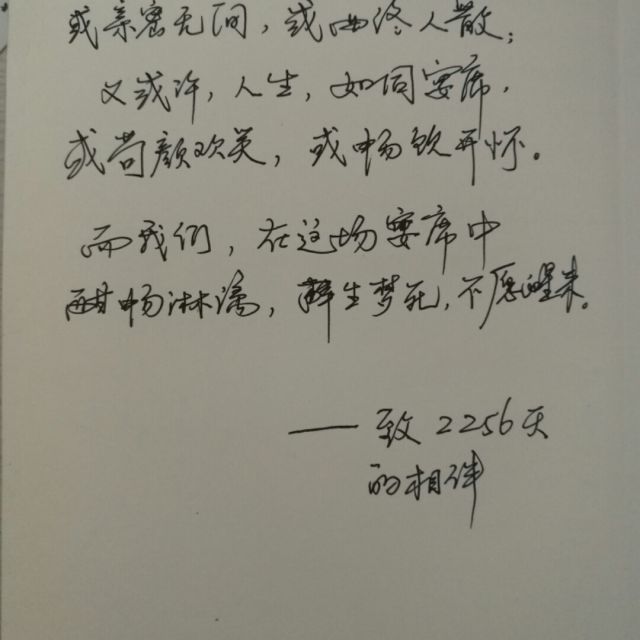 或亲密无间，或曲终人散；
又或许，人生，如同宴席，
或苟颜欢笑，或畅饮开怀。
而我们，在这场宴席中
酣畅淋漓，醉生梦死，不愿醒来。
——致2256天
的相伴